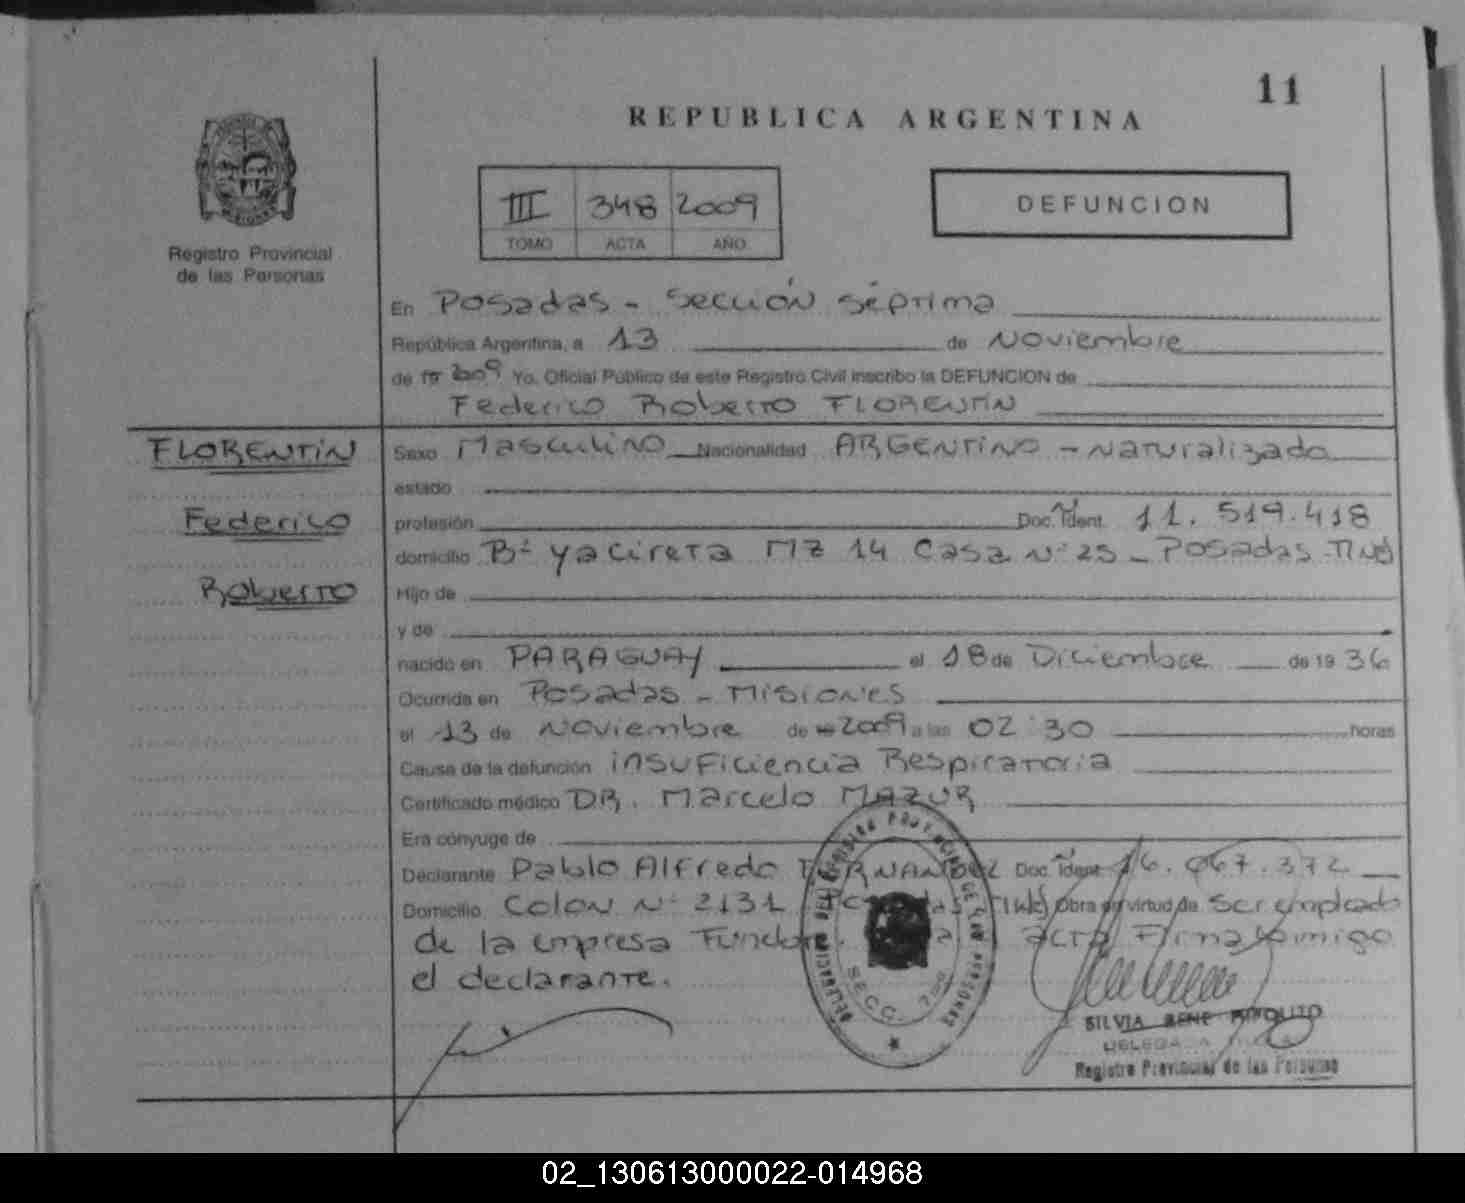 11
REPUBLICA ARGENTINA
III 348 2009
TOMO ACTA AÑO
DEFUNCION
Registro Provincial
de las Personas
En Posadas - Sección séptima
República Argentina, a 13 de Noviembre
de 19 2009 Yo. Oficial Público de este Registro Civil inscribo la DEFUNCION de
Federico Roberto FLORENTÍN
FLORENTÍN
Federico
Roberto
Sexo Masculino Nacionalidad ARGENTINO - Naturalizado
estado
profesión Doc. Ident. Nº 11.519.418
domicilio Bº Yacireta MZ 14 Casa Nº 25 - Posadas
Hijo de
y de
nacido en PARAGUAY el 18 de Diciembre de 19 36
Ocurrida en Posadas - Misiones
el 13 de Noviembre de 2009 a las 02:30 horas
Causa de la defunción insuficiencia Respiratoria
Certificado médico DR. Marcelo MAZUR
Era cónyuge de
Declarante Pablo Alfredo Doc. Ident. Nº 16.067.372
Domicilio Colon Nº 2131 Obra en virtud de Ser empleado
de la empresa acta Firma conmigo
el declarante.
DELEGACION DEL REGISTRO PROVINCIAL DE LAS PERSONAS
SECC. 7ma
SILVIA RENE HIPOLITO
DELEGADA
Registro Provincial de las Personas
02_130613000022-014968